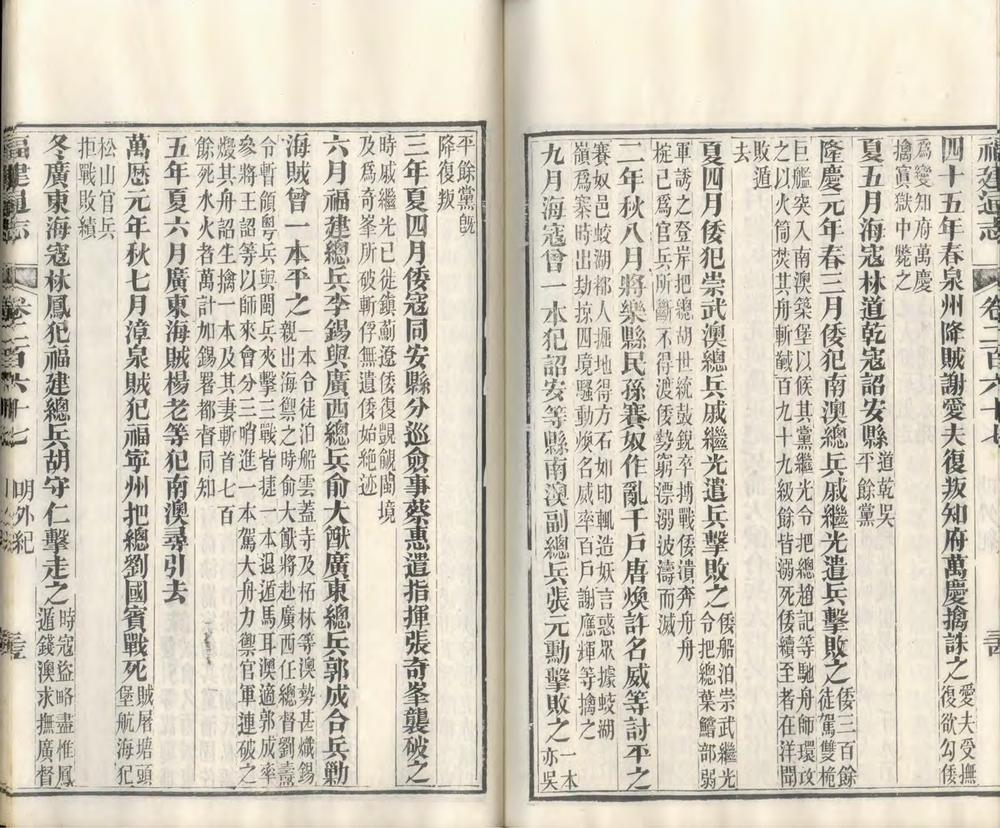 福建通志 卷二百六十七
四十五年春泉州降賊謝愛夫復叛知府萬慶擒誅之
愛夫受撫
復欲勾倭
爲變知府萬慶
擒寘獄中斃之
夏五月海寇林道乾寇詔安縣
道乾吳
平餘黨
隆慶元年春三月倭犯南澳總兵戚繼光遣兵擊敗之
倭三百餘
徒駕雙桅
巨艦突入南澳築堡以候其黨繼光令把總趙記等馳舟師環攻
之以火筒焚其舟斬馘百九十九級餘皆溺死倭續至者在洋聞
敗遁
去
夏四月倭犯崇武澳總兵戚繼光遣兵擊敗之
倭船泊崇武繼光
令把總葉鱨部弱
軍誘之登岸把總胡世統鼓銳卒搏戰倭潰奔舟舟
椗已爲官兵所斷不得渡倭勢窮漂溺波濤而滅
二年秋八月將樂縣民孫賽奴作亂千戶唐煥許名威等討平之
賽奴邑蛟湖鄉人掘地得方石如印輒造妖言惑眾據蛟湖
嶺爲寨時出劫掠四境騷動煥名威率百戶謝應輝等擒之
九月海寇曾一本犯詔安等縣南澳副總兵張元勳擊敗之
一本
亦吳
平餘黨旣
降復叛
三年夏四月倭寇同安縣分巡僉事蔡惠遣指揮張奇峯襲破之
時戚繼光已徙鎮薊遼倭復覬覦閩境
及爲奇峯所破斬俘無遺倭始絶迹
六月福建總兵李錫與廣西總兵俞大猷廣東總兵郭成合兵勦
海賊曾一本平之
一本令徒泊船雲蓋寺及柘林等澳勢甚熾錫
親出海禦之時俞大猷將赴廣西任總督劉燾
令暫領粵兵與閩兵夾擊三戰皆捷一本退遁馬耳澳適郭成率
叅將王詔等以師來會分三哨進一本駕大舟力禦官軍連破之
燬其舟詔生擒一本及其妻斬首七百
餘死水火者萬計加錫署都督同知
五年夏六月廣東海賊楊老等犯南澳尋引去
萬厯元年秋七月漳泉賊犯福寧州把總劉國賓戰死
賊屠塘頭
堡航海犯
松山官兵
拒戰敗績
冬廣東海寇林鳳犯福建總兵胡守仁擊走之
時寇盜略盡惟鳳
遁錢澳求撫廣督
福建通志 卷二百六十七 明外紀